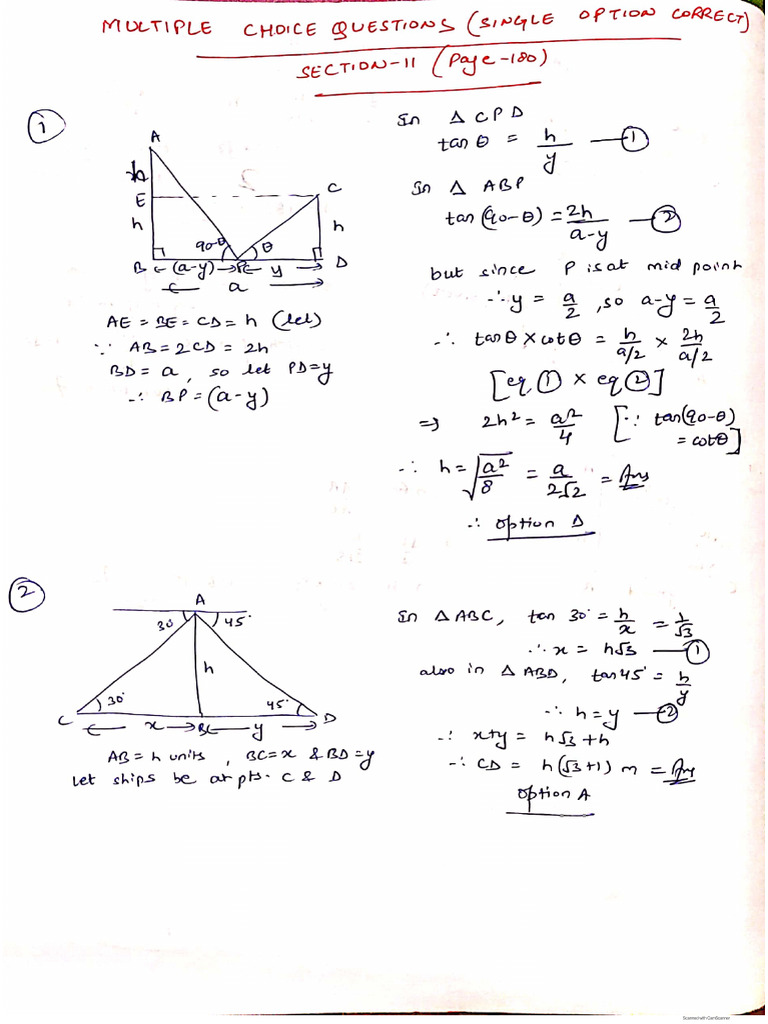 MULTIPLE CHOICE QUESTIONS (SINGLE OPTION CORRECT)
SECTION-11 (Page-180)
1
A
E
h
B
(a-y)
a
90-θ
P
θ
y
C
h
D
AE = BE = CD = h (let)
∵ AB = 2CD = 2h
BD = a, so let PD=y
∴ BP = (a-y)
In Δ CPD
tan θ = h/y — 1
In Δ ABP
tan (90-θ) = 2h/a-y — 2
but since P is at mid point
∴ y = a/2, so a-y = a/2
∴ tanθ × cotθ = h/a/2 × 2h/a/2
[eq. 1 × eq 2]
⇒ 2h² = a²/4 [∵ tan(90-θ)
= cotθ]
∴ h = √a²/8 = a/2√2 = Ans
∴ option D
2
A
30°
45°
h
30°
45°
C
x
B
y
D
AB = h units, BC=x & BD=y
Let ships be at pts. C & D
In Δ ABC, tan 30° = h/x = 1/√3
∴ x = h√3 — 1
also in Δ ABD, tan 45° = h/y
∴ h = y — 2
∴ x+y = h√3 + h
∴ CD = h(√3+1) m = Ans
option A
Scanned with CamScanner